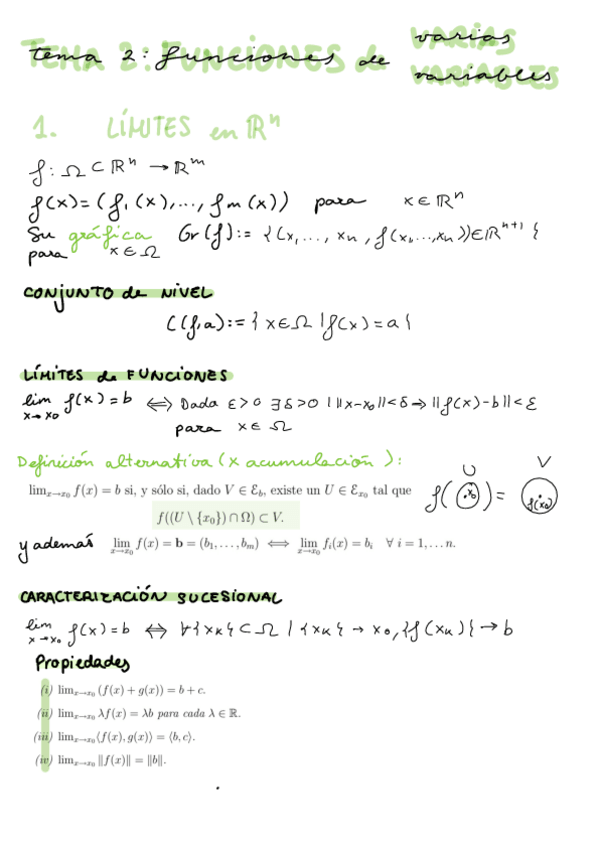 Tema 2: Funciones de varias variables
1. LÍMITES en ℝⁿ
f: Ω ⊂ ℝⁿ → ℝᵐ
f(x) = (f₁(x), ..., fm(x)) para x ∈ ℝⁿ
Su gráfica Gr(f) := {(x₁, ..., xn, f(x₁, ..., xn)) ∈ ℝⁿ⁺¹}
para x ∈ Ω
CONJUNTO de NIVEL
C(f,a) := {x ∈ Ω | f(x) = a}
LÍMITES de FUNCIONES
lim x→x₀ f(x) = b ⟺ Dada ε>0 ∃δ>0 | ||x-x₀||<δ ⇒ ||f(x)-b||<ε
para x ∈ Ω
Definición alternativa (x acumulación):
lim x→x₀ f(x) = b si, y sólo si, dado V ∈ 𝓔b, existe un U ∈ 𝓔x₀ tal que
f((U \ {x₀}) ∩ Ω) ⊂ V.
U V
f( x₀ ) = f(x₀)
y además lim x→x₀ f(x) = b = (b₁, ..., bm) ⟺ lim x→x₀ fi(x) = bi ∀ i = 1, ... n.
CARACTERIZACIÓN SUCESIONAL
lim x→x₀ f(x) = b ⟺ ∀{xk} ⊂ Ω | {xk} → x₀, {f(xk)} → b
Propiedades
(i) lim x→x₀ (f(x) + g(x)) = b + c.
(ii) lim x→x₀ λf(x) = λb para cada λ ∈ ℝ.
(iii) lim x→x₀ ⟨f(x), g(x)⟩ = ⟨b, c⟩.
(iv) lim x→x₀ ‖f(x)‖ = ‖b‖.